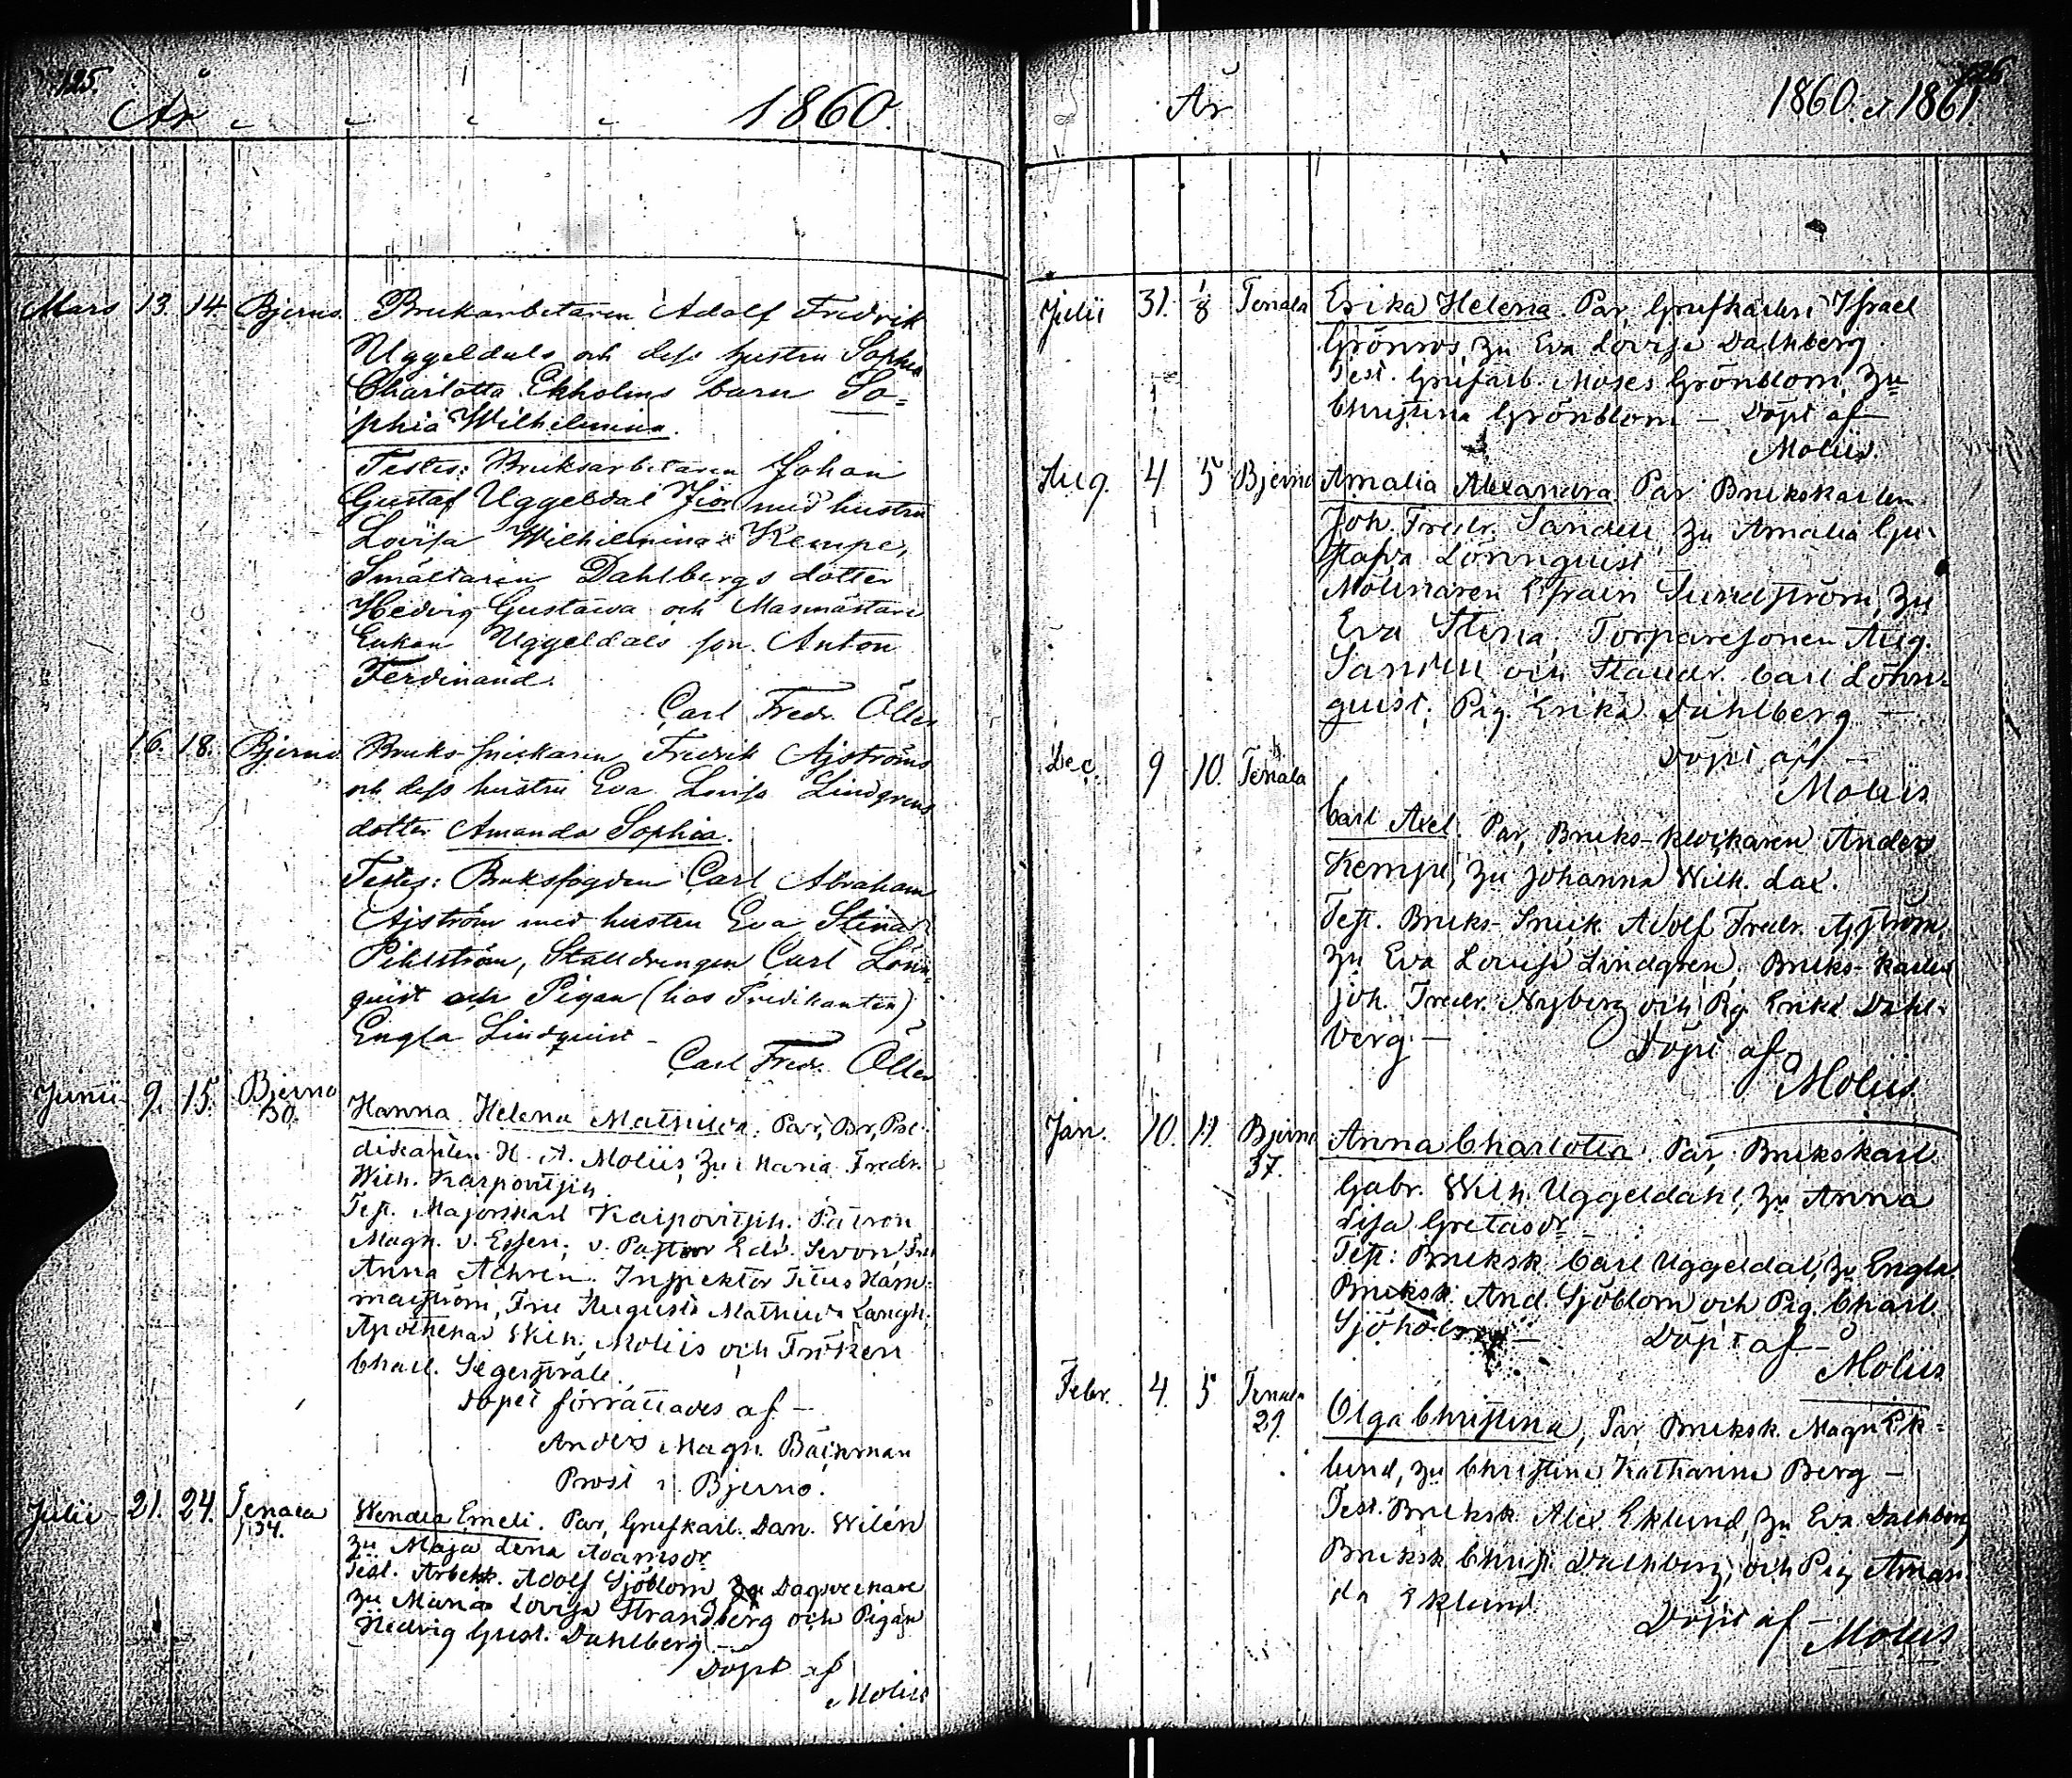 125.
År 1860.
Mars 13. 14. Bjerno. Bruksarbetaren Adolf Fredrik
Uggeldals och dess hustru Sophia
Charlotta Ekholms barn So=
phia Wilhelmina.
Testes: Bruksarbetaren Johan
Gustaf Uggeldal Jiör med hustru
Lovisa Wilhelmina Kempe,
Smältaren Dahlbergs dotter
Hedvig Gustawa och Masmästare
Enkan Uggeldals son Anton
Ferdinand.
Carl Fredr. Öller
16. 18. Bjerno Bruks snickaren Fredrik Ajströms
och dess hustru Eva Lovisa Lindgrens
dotter Amanda Sophia.
Testes: Bruksfogden Carl Abraham
Ajström med hustru Eva Stina
Pihlström, Stalldrengen Carl Lönn=
quist och Pigan (hos Predikanten)
Engla Lindquist –
Carl Fredr. Öller
Junii 9. 15. Bjerno
130.
Hanna Helena Mathilda. Par, Br, Pre=
dikanten H. A. Moliis, Zu Maria Fredr.
Wilh. Karpovitsch.
Test. Majorskan Karpovitsch. Patron
Magn. v. Essen; v. Pastor Edv. Sevon,
Anna Achren. Inspektor Titus Ham=
marström, Fru Augusta Mathilda Langh;
Apothekar Wilh. Moliis och Fröken
Charl. Segerstråle.
Dopet förrättades af –
Anders Magn. Bäckman
Prost i Bjerno.
Julii 21. 24. Tenala
134.
Wendla Emeli. Par, Grufkarl. Dan. Wilén
Zu Maja Lena Adamsdr
Test. Arbetsk. Adolf Sjöblom Dagsverkare
Zu Maria Lovisa Strandberg och Pigan
Hedvig Gust. Dahlberg –
Döpt af
Moliis
126
År 1860. et 1861.
Julii 31. 1/8 Tenala Erika Helena. Par, Grufkarlen Israel
Grönros, Zu Eva Lovisa Dahlberg
Test. Grufarb. Moses Grönblom, Zu
Christina Grönblom – Döpt af –
Moliis.
Aug. 4 5 Bjerno Amalia Alexandra. Par Brukskarlen
Joh. Fredr. Sandell, Zu Amalia Gu=
stafva Lönnquist
Mölnaren Efraim Sundström, Zu
Eva Stina; Torparesonen Aug.
Sandell och Stalldr. Carl Lönn=
quist; Pig. Erika Dahlberg –
Döpt af –
Moliis
Dec. 9 10. Tenala
Carl Axel. Par, Bruks-klockaren Anders
Kempe, Zu Johanna Wilh. Lax.
Test. Bruks-Snick. Adolf Fredr. Ajström,
Zu Eva Lovisa Lindgren; Bruks-karlen
Joh. Fredr. Nyberg och Pig. Erika Dahl=
berg. – Döpt af
Moliis.
Jan. 10. 11. Bjerno
37.
Anna Charlotta. Par, Brukskarl
Gabr. Wilh. Uggeldahl, Zu Anna
Lisa Gretasdr
Test: Bruksk. Carl Uggeldal, Zu Engla
Bruksk. And. Sjöblom och Pig. Charl.
Sjöholm – Döpt af –
Moliis
Febr. 4. 5 Tenala
29.
Olga Christina, Par Bruksk. Magn. Ek=
lund, Zu Christina Katharina Berg –
Test. Bruksk. Alex. Eklund, Zu Eva Dahlberg
Bruksk. Christ. Dahlberg, och Pig. Aman=
da Eklund
Döpt af – Moliis